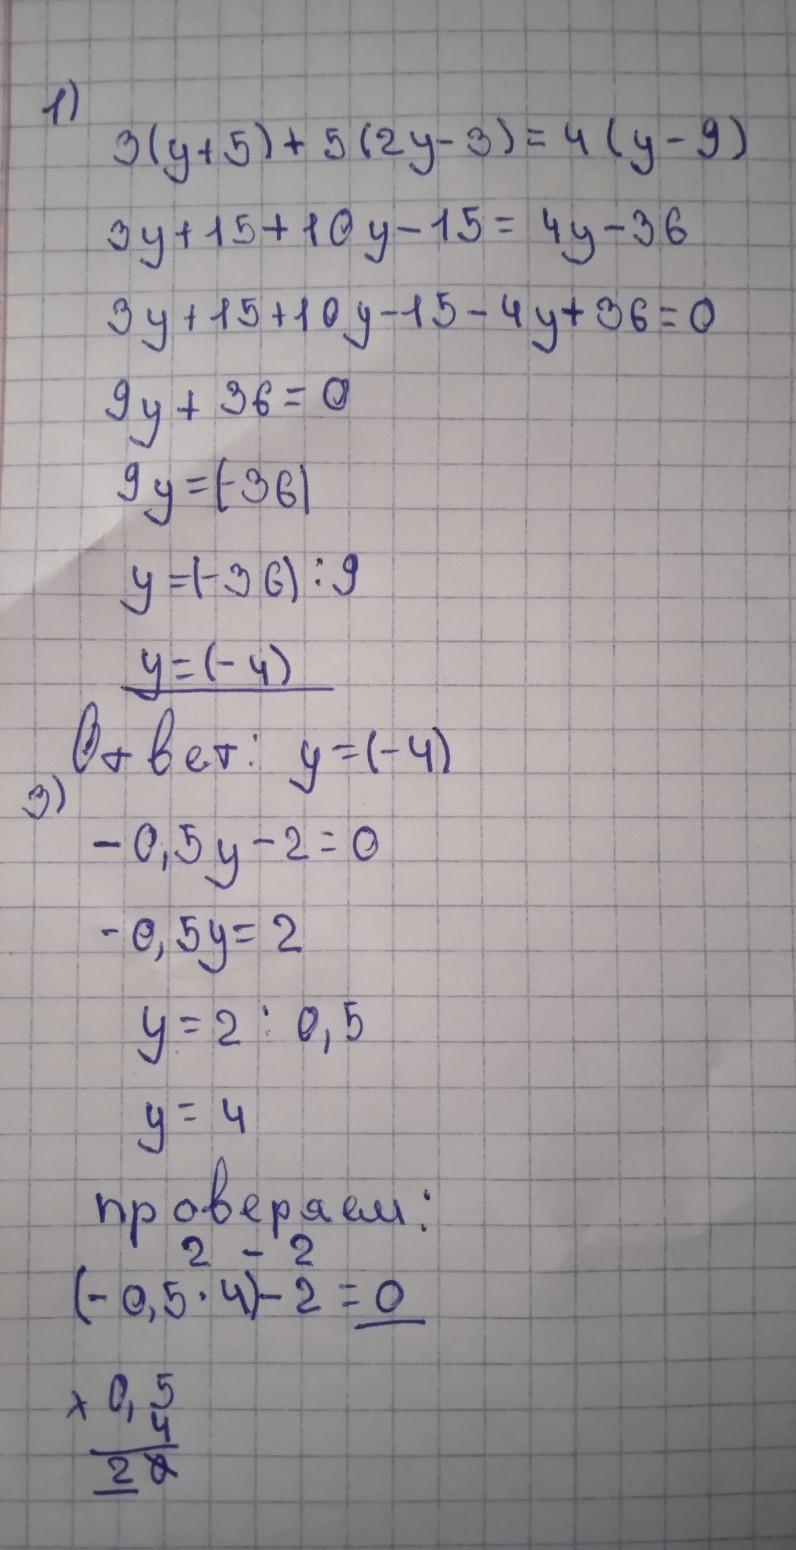 1)
3(y+5)+5(2y-3)=4(y-9)
3y+15+10y-15=4y-36
3y+15+10y-15-4y+36=0
9y+36=0
9y=(-36)
y=(-36):9
y=(-4)
Ответ: y=(-4)
3)
-0,5y-2=0
-0,5y=2
y=2:0,5
y=4
проверяем:
2-2
(-0,5·4)-2=0
x 0,5
4
20